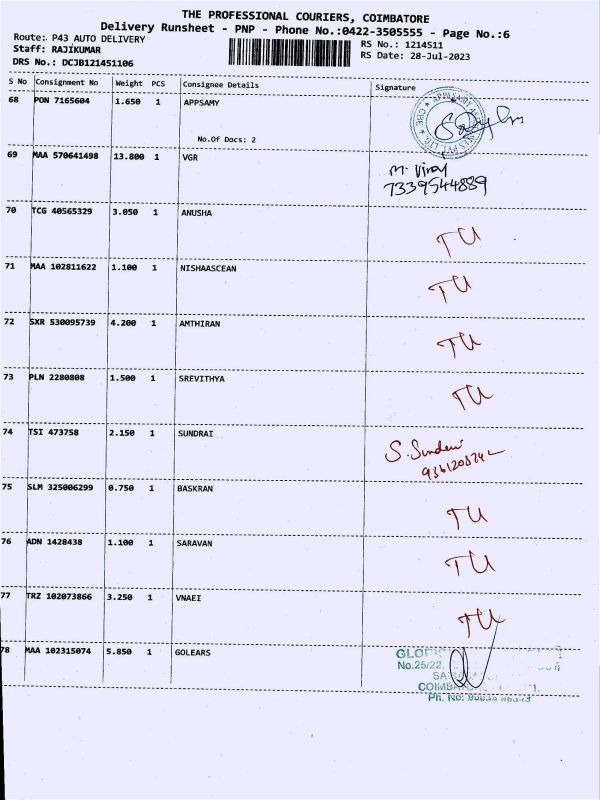 THE PROFESSIONAL COURIERS, COIMBATORE
Delivery Runsheet - PNP - Phone No.:0422-3505555 - Page No.:6
Route: P43 AUTO DELIVERY
RS No.: 1214511
Staff: RAJIKUMAR
RS Date: 28-Jul-2023
DRS No.: DCJB121451106
S No Consignment No Weight PCS Consignee Details Signature
68 PON 7165604 1.650 1 APPSAMY
No.Of Docs: 2
69 MAA 570641498 13.800 1 VGR
7339544889
70 TCG 40565329 3.050 1 ANUSHA
TU
71 MAA 102811622 1.100 1 NISHAASCEAN
TU
72 SXR 530095739 4.200 1 AMTHIRAN
TU
73 PLN 2280808 1.500 1 SREVITHYA
TU
74 TSI 473758 2.150 1 SUNDRAI
75 SLM 325006299 0.750 1 BASKRAN
TU
76 ADN 1428438 1.100 1 SARAVAN
TU
77 TRZ 102073866 3.250 1 VNAEI
TU
78 MAA 102315074 5.850 1 GOLEARS
No.25/22,
Ph. No: